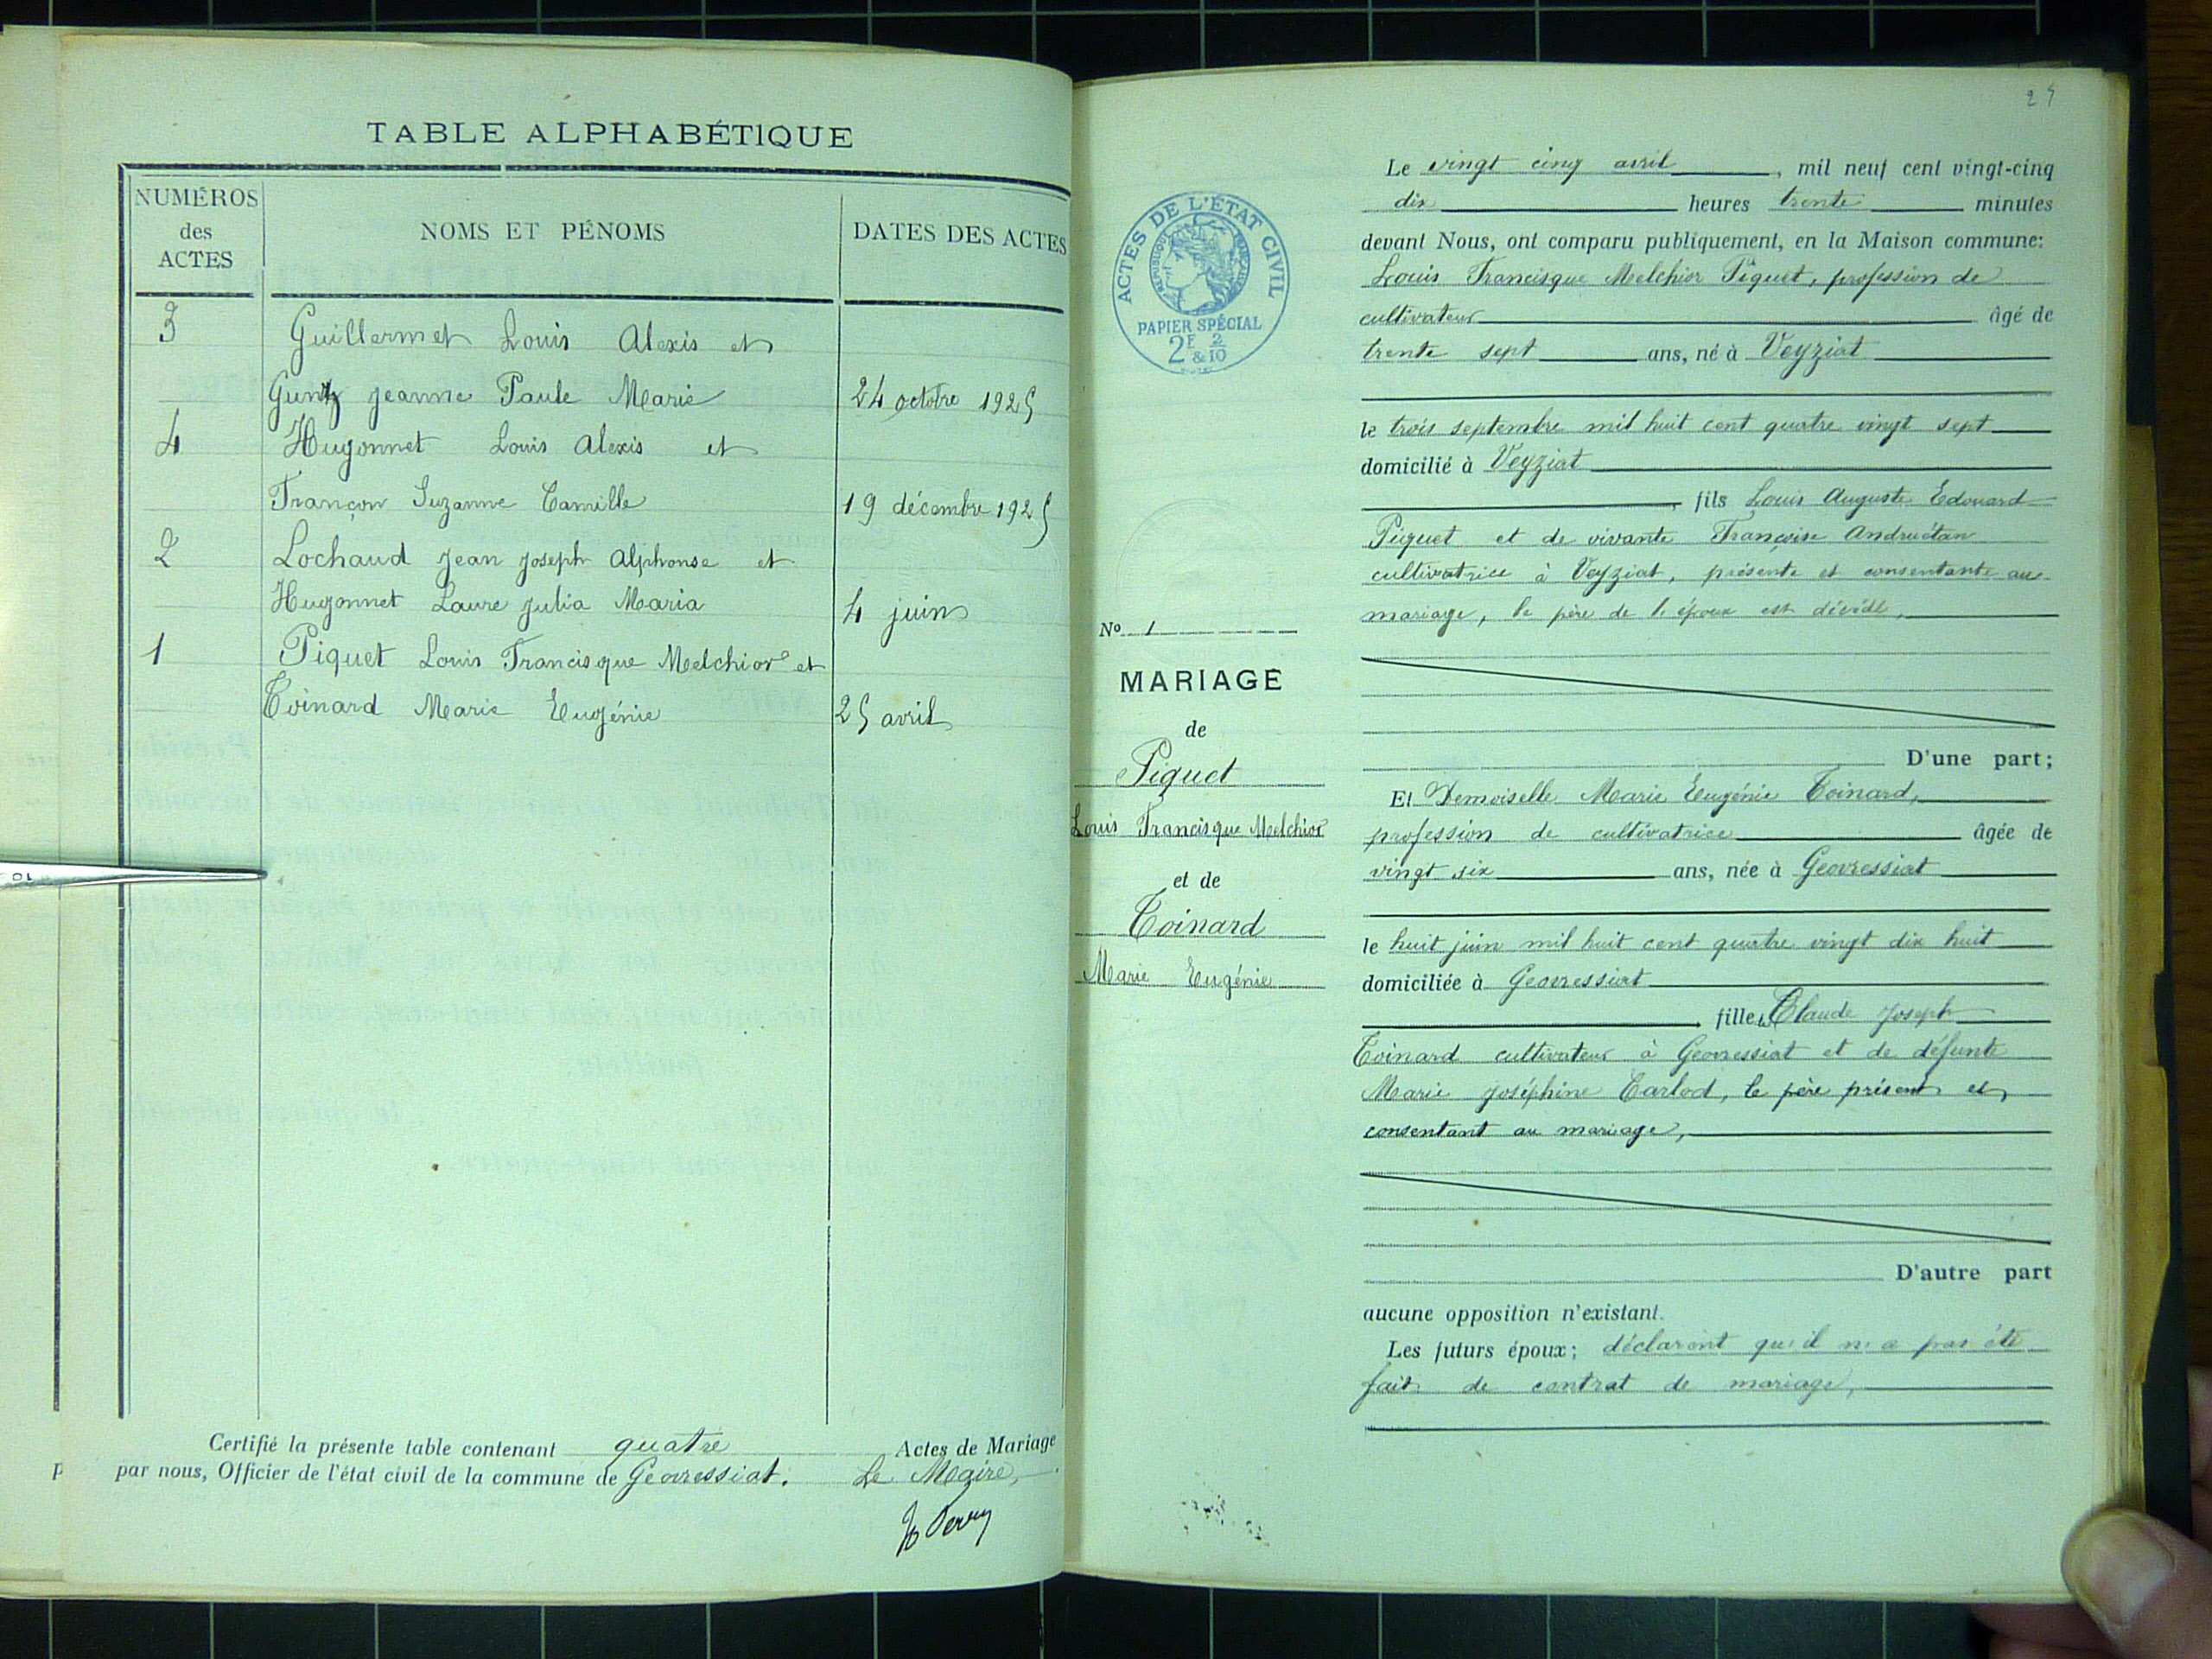 TABLE ALPHABÉTIQUE
NUMÉROS
des
ACTES
NOMS ET PÉNOMS
DATES DES ACTES
3 Guillermet Louis Alexis et
Jeanne Paule Marie 24 octobre 1925
4 Hugonnet Louis Alexis et
Françon Suzanne Camille 19 décembre 1925
2 Lochaud Jean Joseph Alphonse et
Hugonnet Laure Julia Maria 4 juin
1 Piquet Louis Francisque Melchior et
Toinard Marie Eugénie 25 avril
Certifié la présente table contenant quatre Actes de Mariage
par nous, Officier de l'état civil de la commune de Geovressiat. Le Maire,
10
25
ACTES DE L'ÉTAT CIVIL
RÉPUBLIQUE FRANÇAISE
PAPIER SPÉCIAL
2F 2
& 10
No 1
MARIAGE
de
Piquet
Louis Francisque Melchior
et de
Toinard
Marie Eugénie
Le vingt cinq avril, mil neuf cent vingt-cinq
dix heures trente minutes
devant Nous, ont comparu publiquement, en la Maison commune:
Louis Francisque Melchior Piquet, profession de
cultivateur âgé de
trente sept ans, né à Veyziat
le trois septembre mil huit cent quatre vingt sept
domicilié à Veyziat
, fils Louis Auguste Edouard
Piquet et de vivante Françoise Andruétan
cultivatrice à Veyziat, présente et consentante au
mariage, le père de l'époux est décédé,
D'une part;
Et Demoiselle Marie Eugénie Toinard,
profession de cultivatrice âgée de
vingt six ans, née à Geovressiat
le huit juin mil huit cent quatre vingt dix huit
domiciliée à Geovressiat
, fille de Claude Joseph
Toinard cultivateur à Geovressiat et de défunte
Marie Joséphine Carlod, le père présent et
consentant au mariage,
D'autre part
aucune opposition n'existant.
Les futurs époux; déclarent qu'il n'a pas été
fait de contrat de mariage,